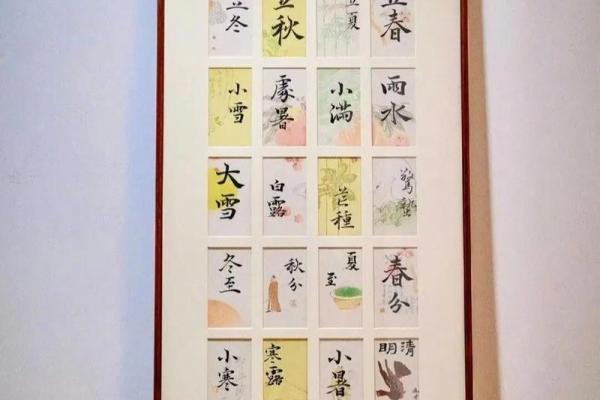 立春
雨水
驚蟄
春分
清明
立夏
小滿
芒種
夏至
小暑
立秋
處暑
白露
秋分
寒露
立冬
小雪
大雪
冬至
小寒